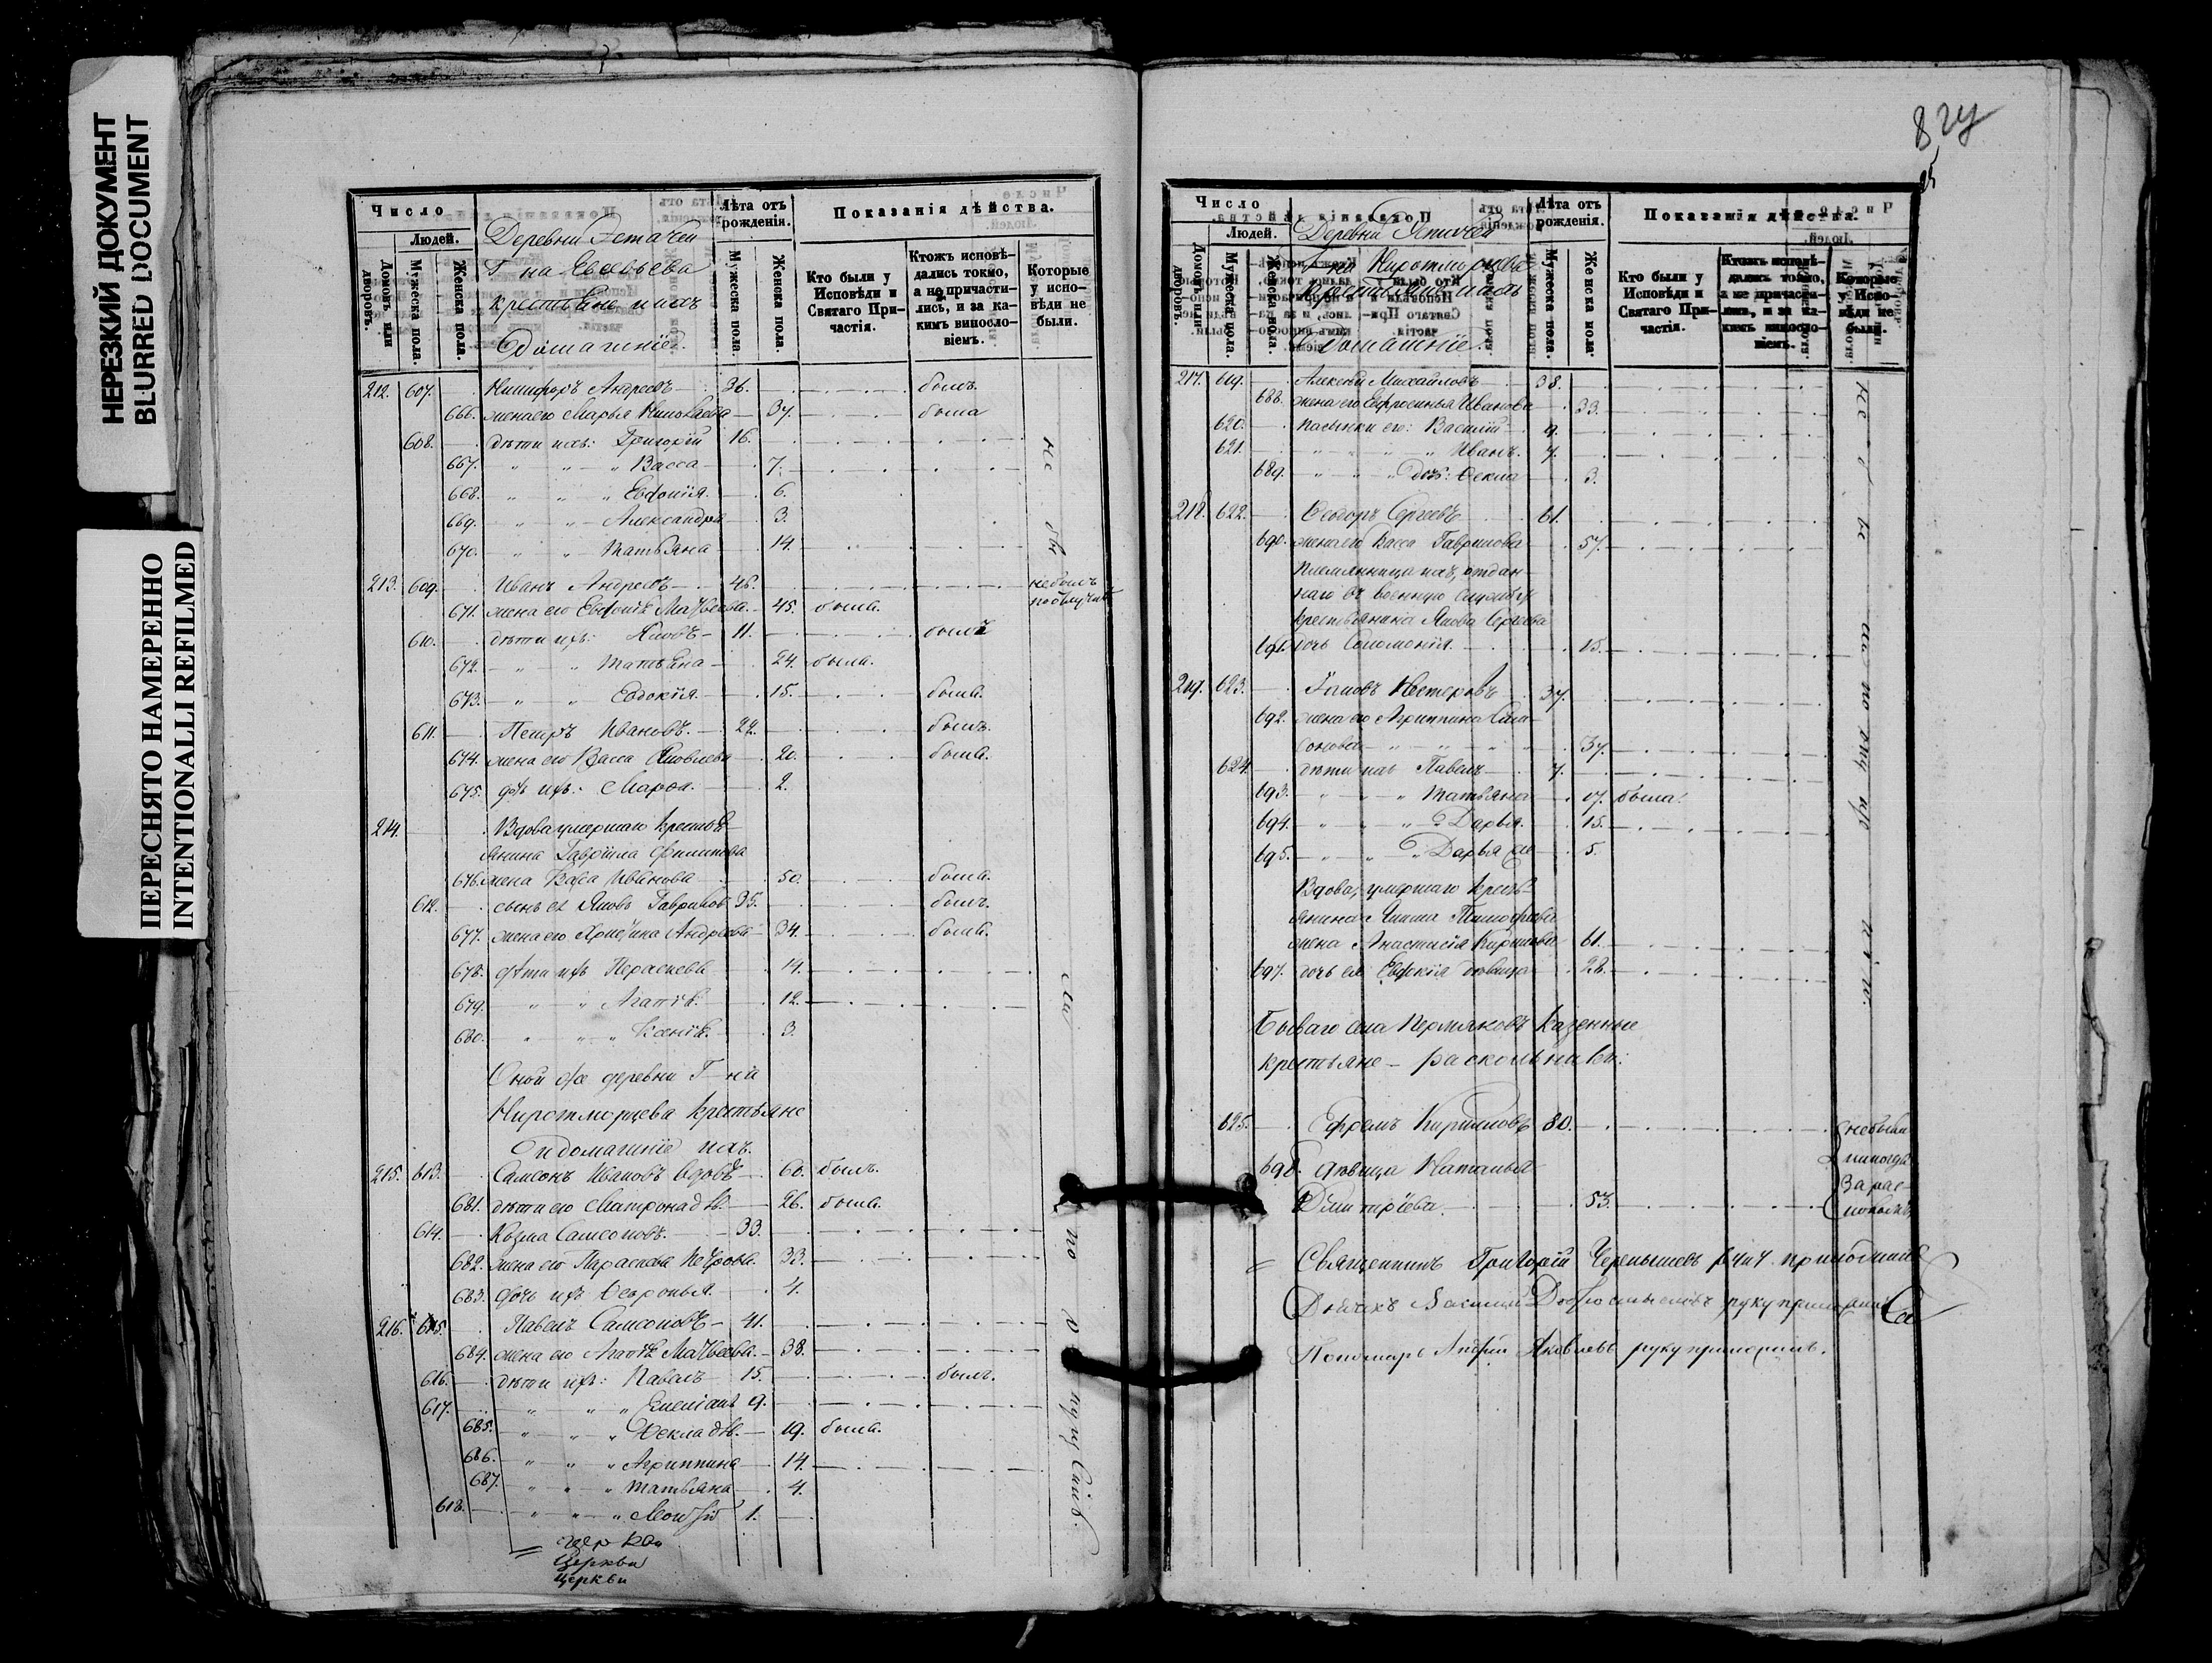 НЕРЕЗКИЙ ДОКУМЕНТ
BLURRED DOCUMENT
ПЕРЕСНЯТО НАМЕРЕННО
INTENTIONALLI REFILMED
Число
Людей.
Домовъ или дворовъ.
Мужеска пола.
Женска пола.
Деревни
Г на
крестьяне и ихъ
домашніе.
Лѣта отъ рожденія.
Мужеска пола.
Женска пола.
Показанія дѣйства.
Кто были у Исповѣди и Святаго Причастія.
Ктожъ исповѣдались токмо, а не причастились, и за какимъ винословіемъ.
Которые у исповѣди не были.
212. 607. Никифоръ Андреевъ 36. былъ.
666. жена его Марья Николаева 37. была
608. дѣти ихъ: Григорій 16.
667. " " " Васса 7.
668. " " " Евдокія. 6.
669. " " Александра 3.
670. " " Татьяна 14.
213. 609. Иванъ Андреевъ 46. не былъ
671. жена его Матвеева. 45. была.
610. дѣти ихъ: Яковъ 11. былъ
672. " " Татьяна 24. была.
673. " " Евдокія. 15. была.
611. Петръ Ивановъ. 22. былъ.
674. жена его Васса Яковлева 20. была.
675. дочь ихъ: Марѳа. 2.
214. Вдова умершаго крестьянина Гавріила Филипова
676. жена Васса Иванова 50. была.
612. сынъ ея Яковъ Гаврилов 35. былъ.
677. жена его Христина Андреева 34. была.
678. дѣти ихъ Параскева 14.
679. " " Агапія. 12.
680. " " " Ксенія. 3.
Оной же деревни Г на
крестьяне
и домашніе ихъ.
215. 613. Самсонъ Ивановъ вдовъ 60. былъ.
681. дѣти его Матрона дѣв. 26. была.
614. Козма Самсоновъ. 33.
682. жена его Параскева Петрова. 33.
683. дочь ихъ Ѳевронья. 4.
216. 615. Павелъ Самсоновъ 41.
684. жена его Агапія Матвеева. 38.
616. дѣти ихъ: Павелъ 15. былъ.
617. " " " 9.
685. " " " Ѳекла дѣв. 19. была.
686. " " " Агриппина 14.
687. " " " Татьяна 4.
618. " " " 1.
Церкви
церкви
Число
Людей.
Домовъ или дворовъ.
Мужеска пола.
Женска пола.
Деревни
Г на
крестьяне и ихъ
домашніе.
Лѣта отъ рожденія.
Мужеска пола.
Женска пола.
Показанія дѣйства.
Кто были у Исповѣди и Святаго Причастія.
Ктожъ исповѣдались токмо, а не причастились, и за какимъ винословіемъ.
Которые у Исповѣди не были.
217. 619. Алексѣй Михайловъ 38.
688. жена его Евфросинья Иванова 33.
620. пасынки его: Василій 9.
621. " " " Иванъ. 7.
689. " " дочь: Ѳекла 3.
218. 622. Ѳеодоръ Сергеевъ 61.
690. жена его Васса Гаврилова 57.
Племянница ихъ, отданнаго въ военную службу
крестьянина Якова Сергеева
691. дочь Соломонія. 15.
219. 623. Іаковъ Нестеровъ 37.
692. жена его Агриппина Самсонова 37.
624. дѣти ихъ Павелъ 7.
693. " " " Татьяна 17. была.
694. " " " Дарья. 15.
695. " " " Дарья же 5.
Вдова, умершаго крестьянина
жена Анастасія 61.
697. дочь ея Евдокія дѣвица 28.
крестьяне – раскольники:
625. Ефремъ Кириловъ 80. небыли никогда за
698. дѣвица Наталья
Дмитріева. 53.
Священникъ Григорій
Дьячекъ Василій руку приложилъ
Пономарь Андрей Яковлевъ руку приложилъ.